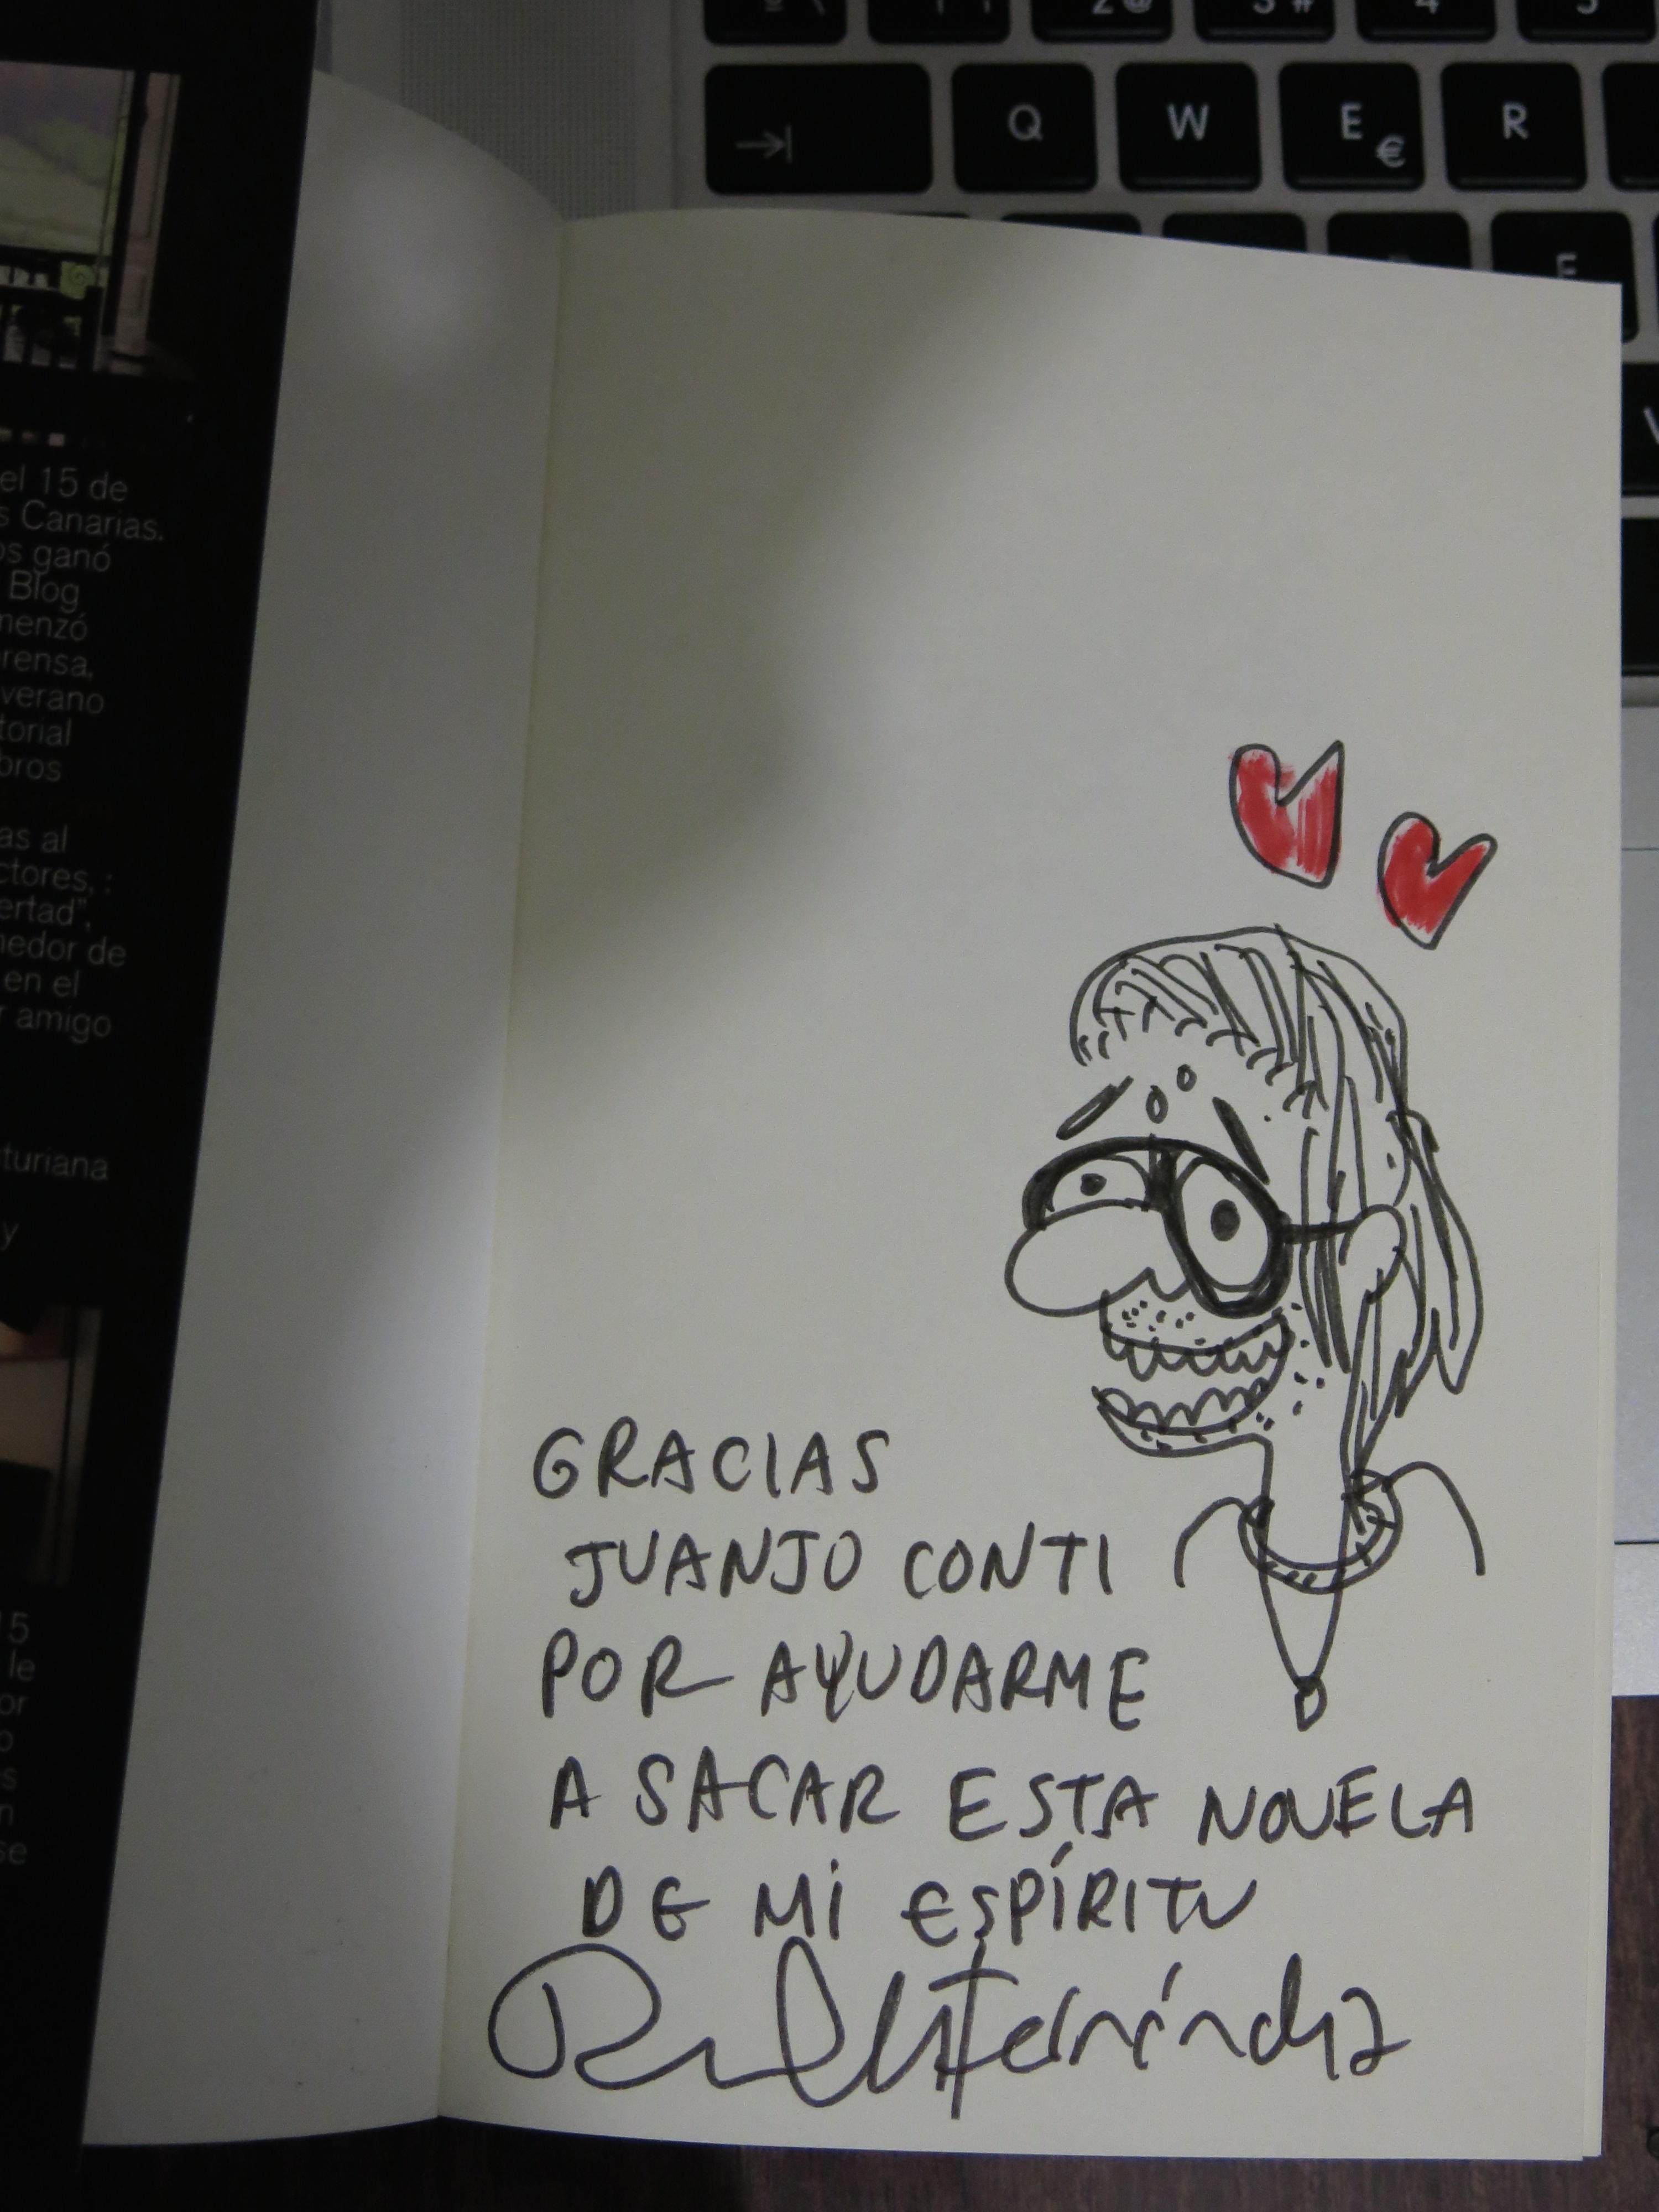 2 @
3 #
4
5
Q W E R
€
F
el 15 de
s Canarias.
os ganó
Blog
menzó
rensa,
verano
torial
bros
as al
ctores, :
ertad",
nedor de
en el
r amigo
turiana
y
15
le
or
o
s
n
se
GRACIAS
JUANJO CONTI
POR AYUDARME
A SACAR ESTA NOVELA
DE MI ESPÍRITU
Fernández